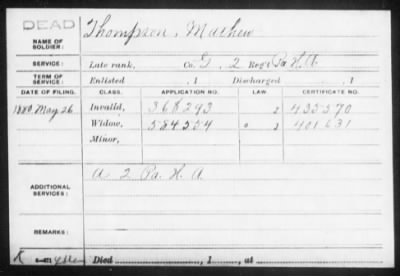 DEAD
NAME OF SOLDIER: Thompson, Mathew
SERVICE: Late rank, Co. G, 2 Reg't Pa. H. A.
TERM OF SERVICE: Enlisted , 1 Discharged , 1
DATE OF FILING. CLASS. APPLICATION NO. LAW. CERTIFICATE NO.
1880 May 26 Invalid, 368293 435570
Widow, 584554 401631
Minor,
ADDITIONAL SERVICES: A 2 Pa. H. A
REMARKS:
Died , 1 , at